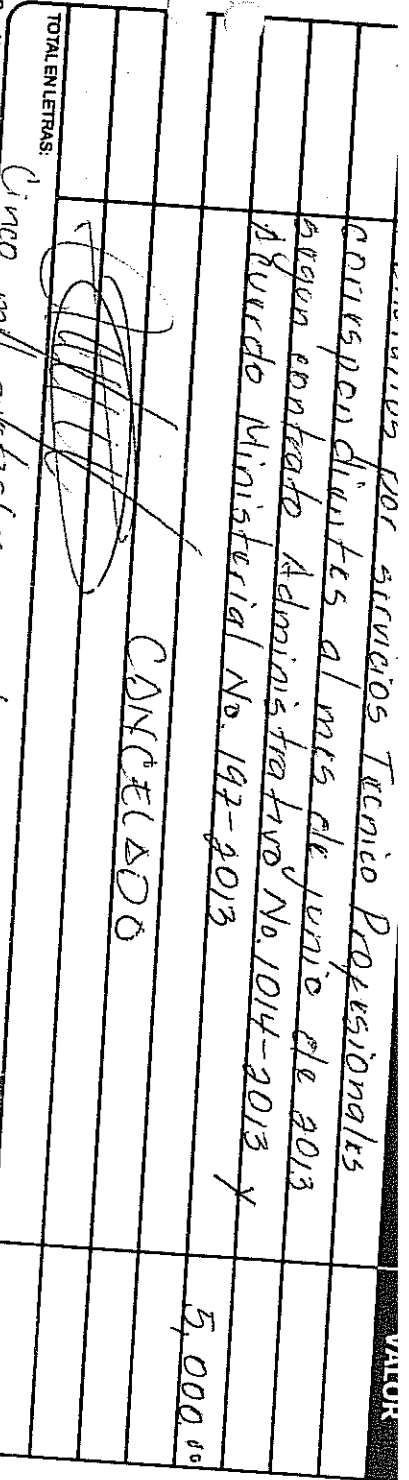 VALOR
por servicios Tecnico Profesionales
correspondientes al mes de junio de 2013
según contrato Administrativo No. 1014-2013 y
Acuerdo Ministerial No. 197-2013
5,000.00
CANCELADO
TOTAL EN LETRAS:
Cinco mil quetzales